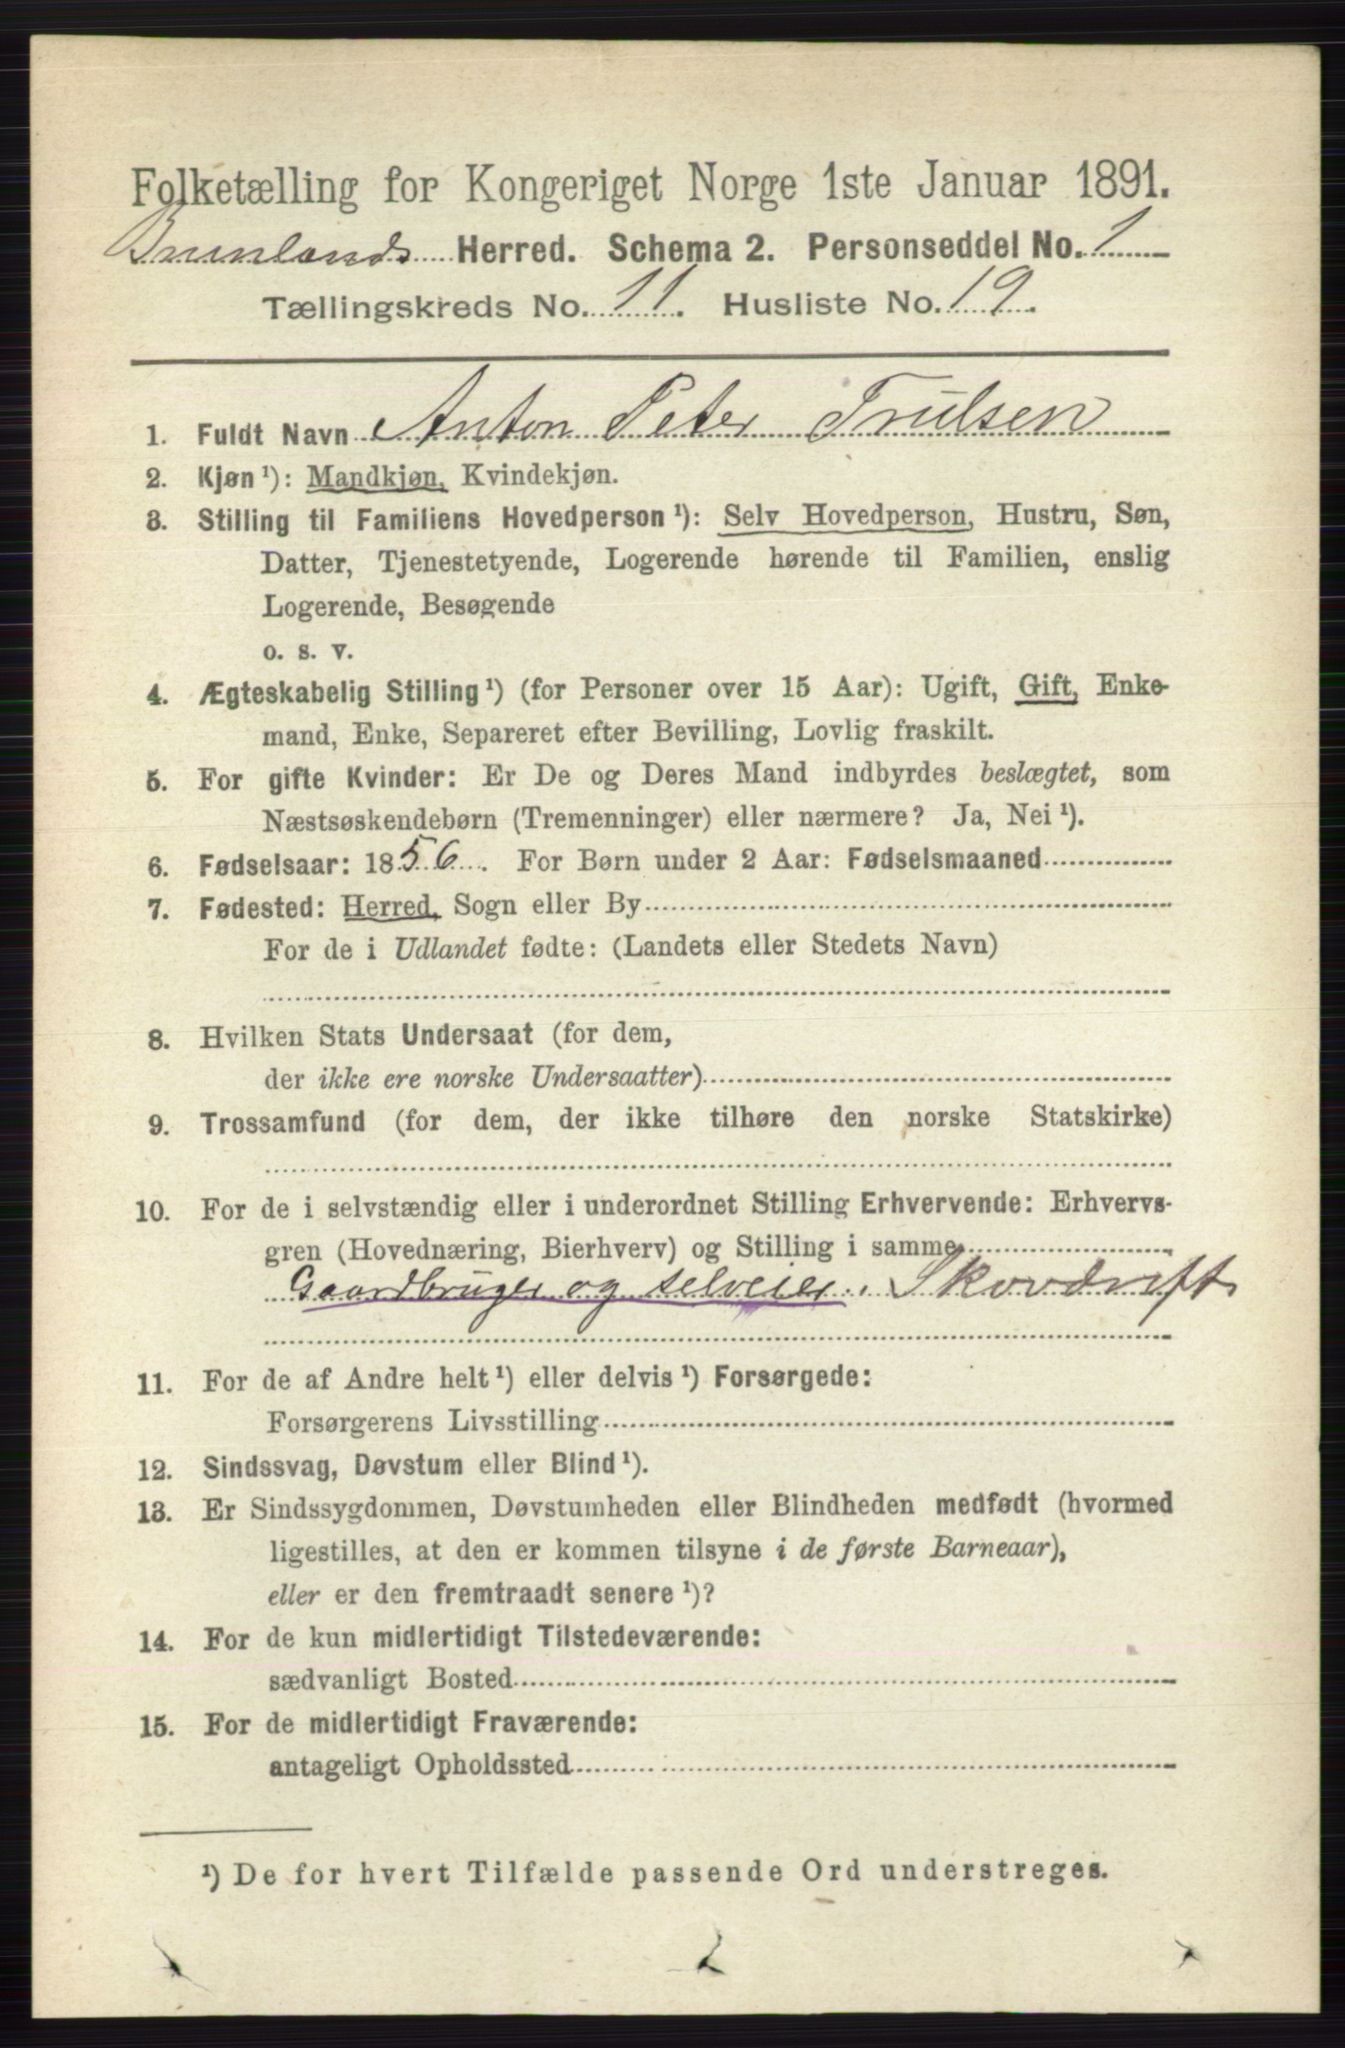 Folketælling for Kongeriget Norge 1ste Januar 1891.
Brunlands Herred. Schema 2. Personseddel No. 1
Tællingskreds No. 11. Husliste No. 19.
1. Fuldt Navn Anton Peter Trulsen
2. Kjøn ¹): Mandkjøn, Kvindekjøn.
3. Stilling til Familiens Hovedperson ¹): Selv Hovedperson, Hustru, Søn,
Datter, Tjenestetyende, Logerende hørende til Familien, enslig
Logerende, Besøgende
o. s. v.
4. Ægteskabelig Stilling ¹) (for Personer over 15 Aar): Ugift, Gift, Enke-
mand, Enke, Separeret efter Bevilling, Lovlig fraskilt.
5. For gifte Kvinder: Er De og Deres Mand indbyrdes beslægtet, som
Næstsøskendebørn (Tremenninger) eller nærmere? Ja, Nei ¹).
6. Fødselsaar: 1856. For Børn under 2 Aar: Fødselsmaaned
7. Fødested: Herred, Sogn eller By
For de i Udlandet fødte: (Landets eller Stedets Navn)
8. Hvilken Stats Undersaat (for dem,
der ikke ere norske Undersaatter)
9. Trossamfund (for dem, der ikke tilhøre den norske Statskirke)
10. For de i selvstændig eller i underordnet Stilling Erhvervende: Erhvervs-
gren (Hovednæring, Bierhverv) og Stilling i samme
Gaardbruger og selveier. Skovdrift
11. For de af Andre helt ¹) eller delvis ¹) Forsørgede:
Forsørgerens Livsstilling
12. Sindssvag, Døvstum eller Blind ¹).
13. Er Sindssygdommen, Døvstumheden eller Blindheden medfødt (hvormed
ligestilles, at den er kommen tilsyne i de første Barneaar),
eller er den fremtraadt senere ¹)?
14. For de kun midlertidigt Tilstedeværende:
sædvanligt Bosted
15. For de midlertidigt Fraværende:
antageligt Opholdssted
¹) De for hvert Tilfælde passende Ord understreges.